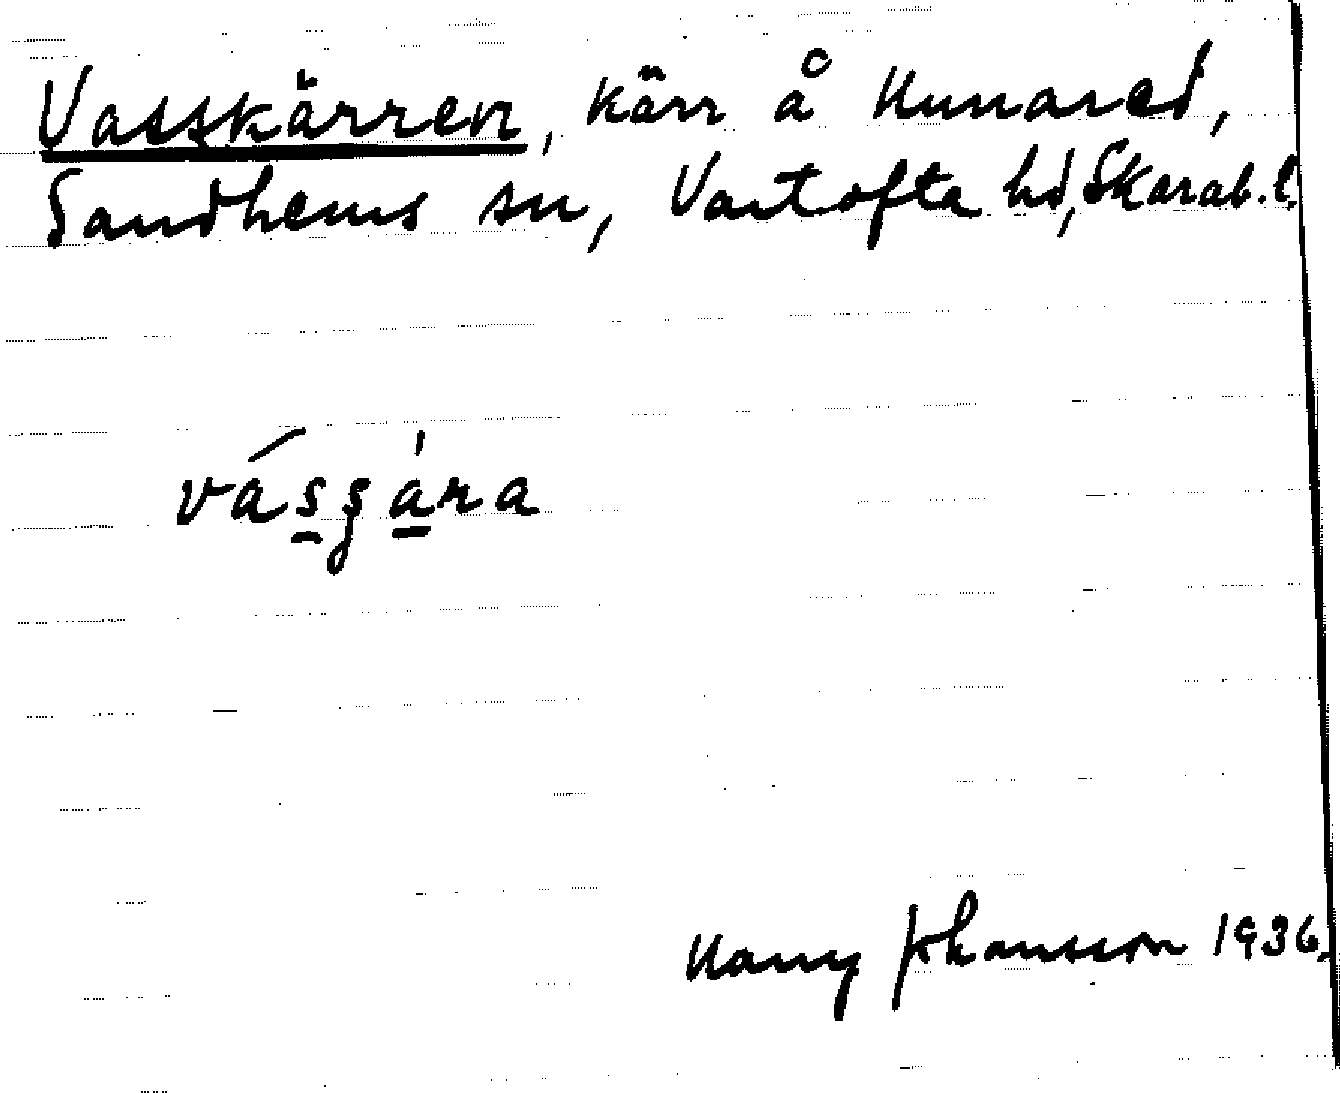 Vasskärren, kärr å Hunared,
Sandhems sn, Vartofta hd, Skarab. l.
vásgára
Harry Johansson 1936.